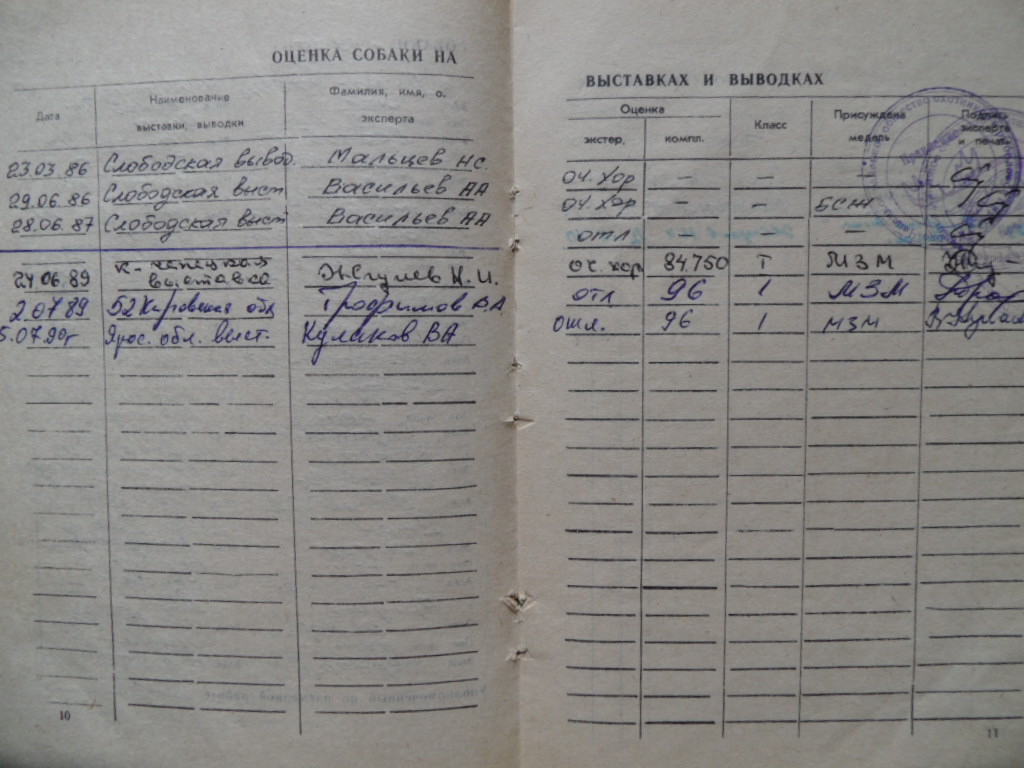 ОЦЕНКА СОБАКИ НА
ВЫСТАВКАХ И ВЫВОДКАХ
Дата Наименование выставки, выводки Фамилия, имя, о. эксперта Оценка экстер. компл. Класс Присуждена медаль Подпись эксперта и печать
23.03.86 Слободская вывод. Мальцев НС оч. хор – –
29.06.86 Слободская выст Васильев АА оч. хор – – БСЖ
28.06.87 Слободская выст Васильев АА отл – –
24.06.89 К-Чепецкая выставка Жгулев Н.И. оч. хор 84.750 I МЗМ
2.07.89 52 Кировская обл Трофимов В.А отл 96 1 МЗМ
5.07.90г Ярос. обл. выст. Кулаков ВА отл. 96 1 МЗМ
10
11